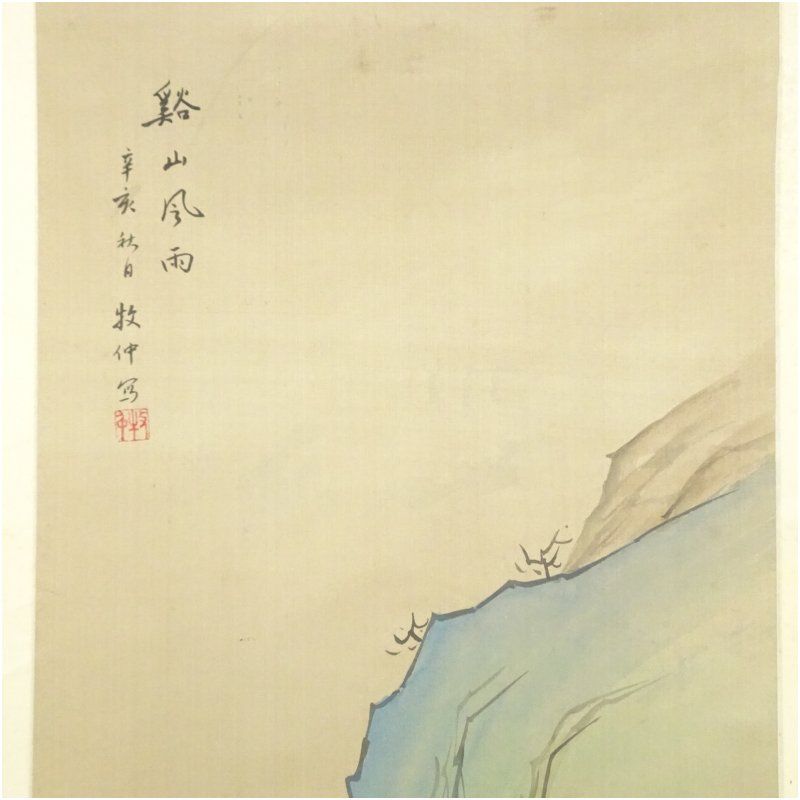 谿山風雨
辛亥秋日牧仲写